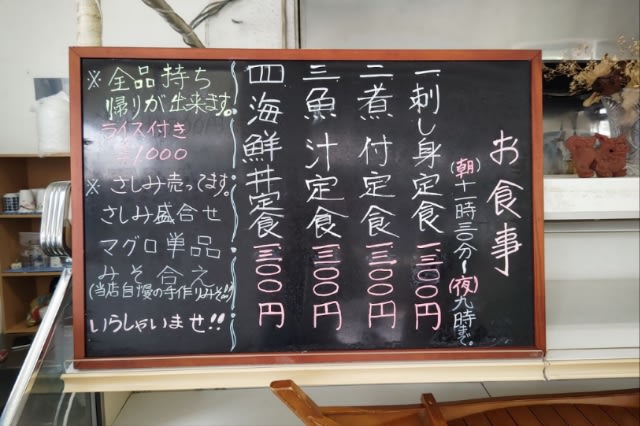 お食事
(朝)十一時三〇分〜(夜)九時まで。
一刺し身定食一三〇〇円
二煮付定食一三〇〇円
三魚汁定食一三〇〇円
四海鮮丼定食一三〇〇円
※全品持ち
帰りが出来ます。
ライス付き
¥1000
※さしみ売ってます。
さしみ盛合せ
マグロ単品
みそ合え
(当店自慢の手作りみそ!!)
いらしゃいませ!!